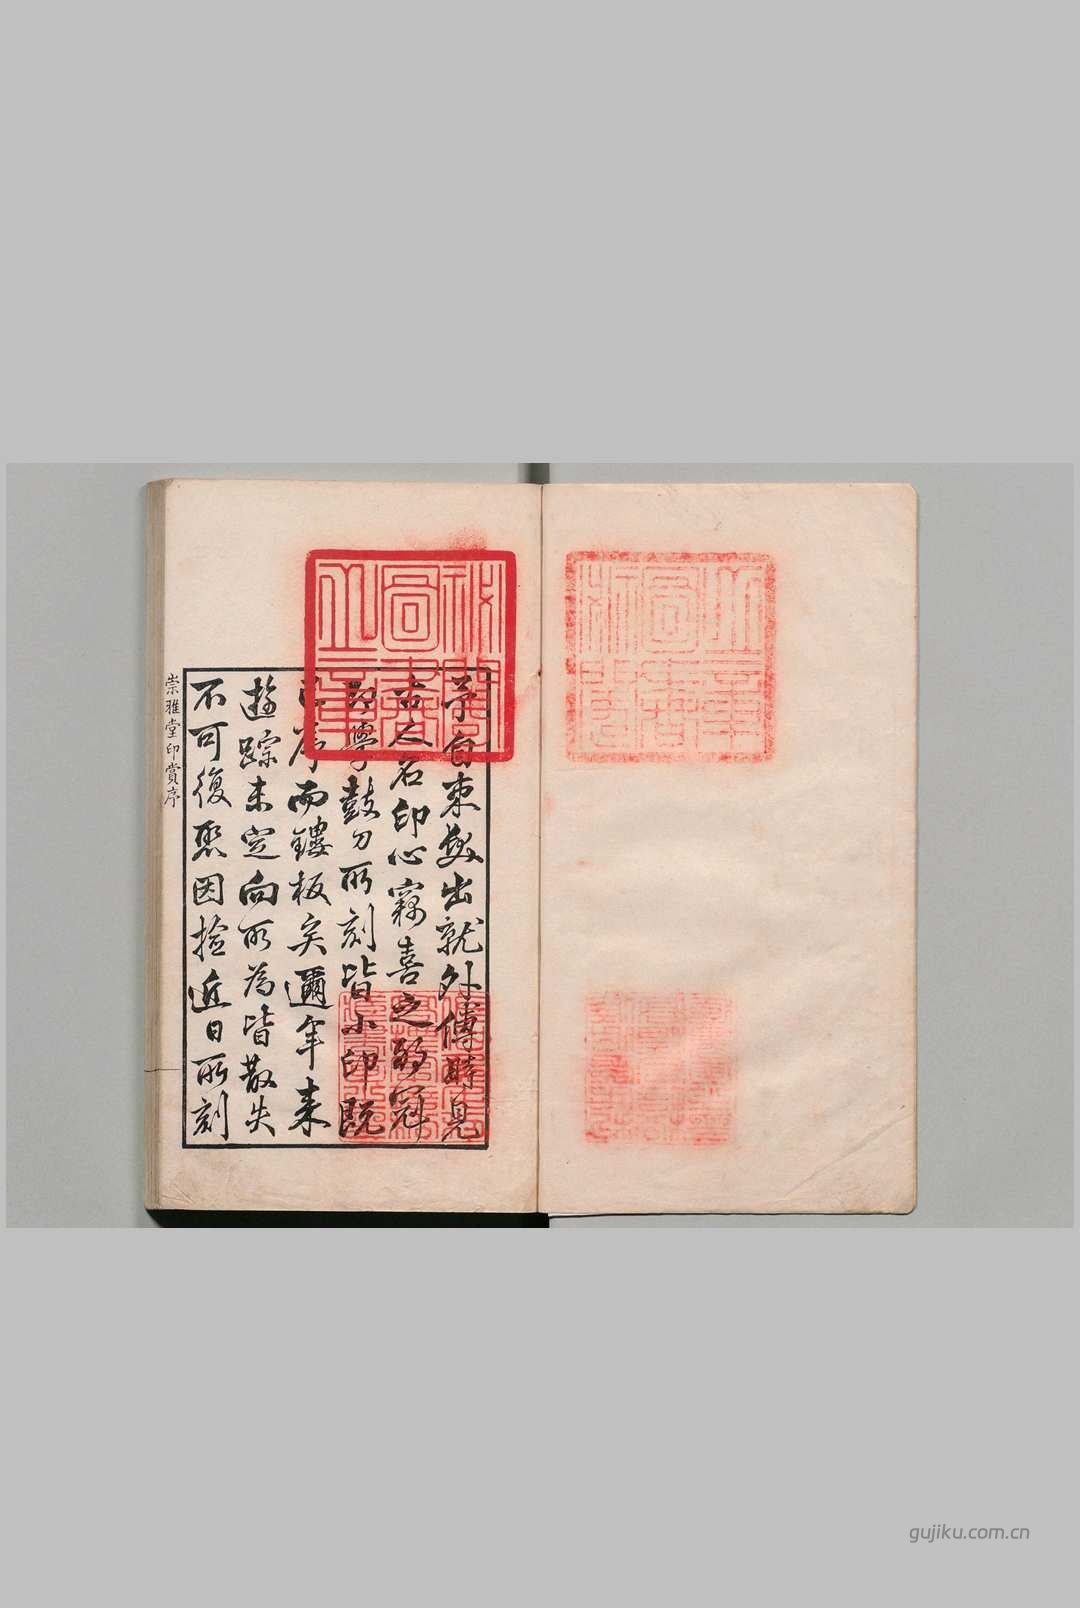 秘閣
圖書
之章
予自束髮出就外傅時見
古人名印心竊喜之弱冠
即學鼓刀所刻皆小印既
已而鏤板矣邇年來
遊踪未定向所為皆散失
不可復聚因撿近日所刻
崇雅堂印賞序
gujiku.com.cn